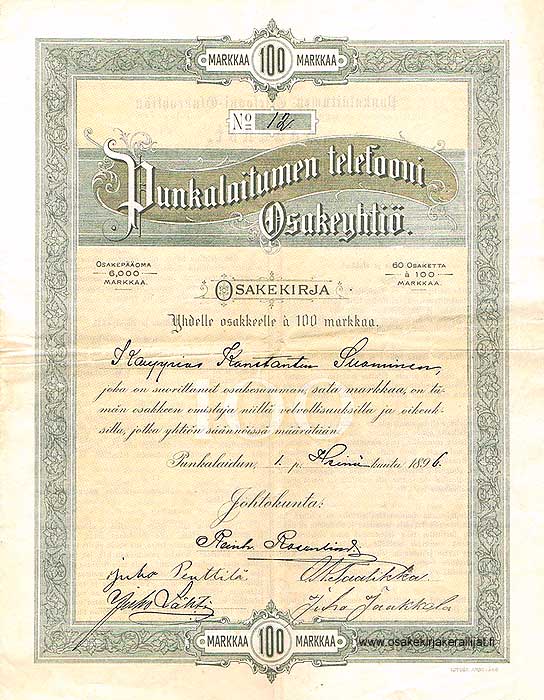 MARKKAA 100 MARKKAA
No 12
Punkalaitumen telefooni
Osakeyhtiö.
OSAKEPÄÄOMA
6,000
MARKKAA.
60 OSAKETTA
à 100
MARKKAA.
OSAKEKIRJA
Yhdelle osakkeelle à 100 markkaa.
Kauppias Konstantin Suominen,
joka on suorittanut osakesumman, sata markkaa, on tä-
män osakkeen omistaja niillä velvollisuuksilla ja oikeuk-
silla, jotka yhtiön säännöissä määrätään.
100
Punkalaidun, 1. p. Heinä kuuta 1896.
Johtokunta:
Reinh.
Juho Penttilä
Juho
Juho Jaakkola
www.osakekirjakerailijat.fi
MARKKAA 100 MARKKAA